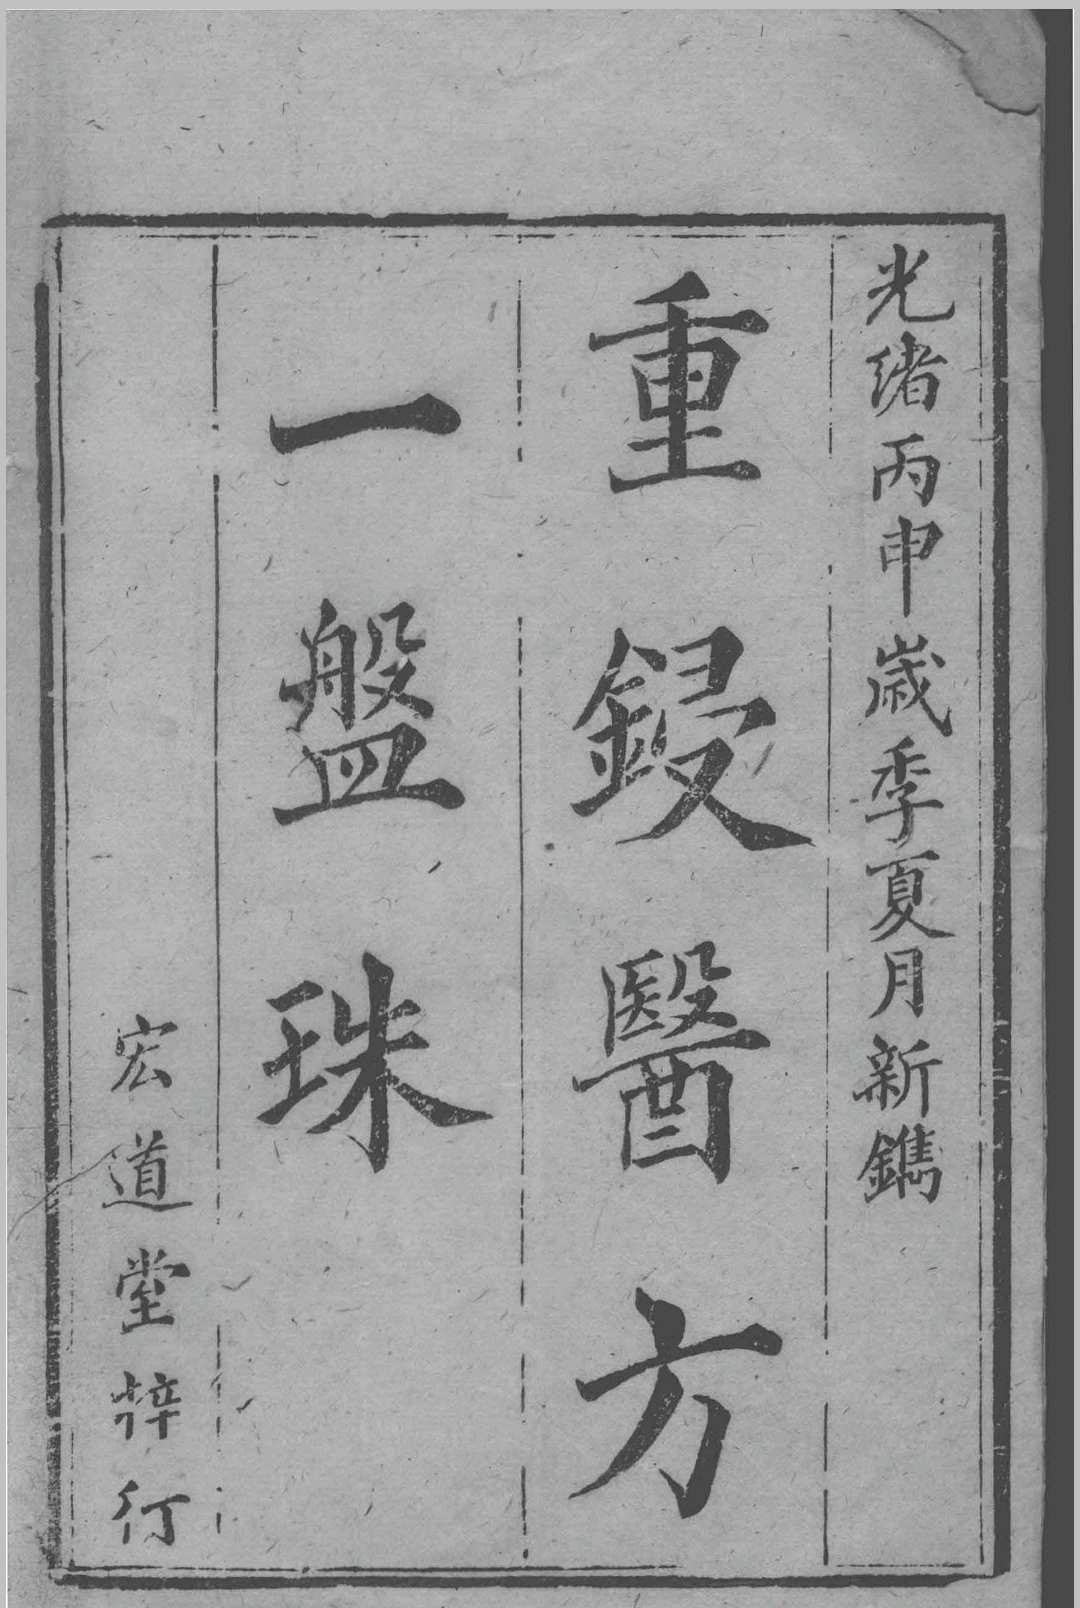 光緒丙申歲季夏月新鐫
重鋟醫方
一盤珠
宏道堂梓行